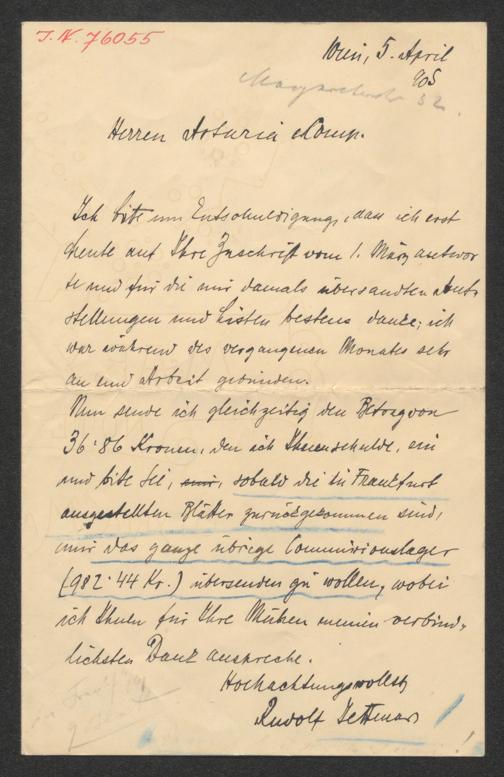 J.N. 76055
Wien, 5. April
905
Herren Artaria & Comp.
Ich bitte um Entschuldigung, dass ich erst
heute auf Ihre Zuschrift vom 1. März antwor
te und für die mir damals übersandten
stellungen und Listen bestens danke; ich
war während des vergangenen Monates sehr
an eine Arbeit gebunden.
Nun sende ich gleichzeitig den Betrag von
36·86 Kronen, den ich Ihnen schulde, ein
und bitte Sie, mir, sobald die in Frankfurt
ausgestellten Blätter zurückgekommen sind,
mir das ganze übrige Commissionslager
(982·44 Kr.) übersenden zu wollen, wobei
ich Ihnen für Ihre Mühen meinen verbind-
lichsten Dank ausspreche.
Hochachtungsvollst
Rudolf Jettmar